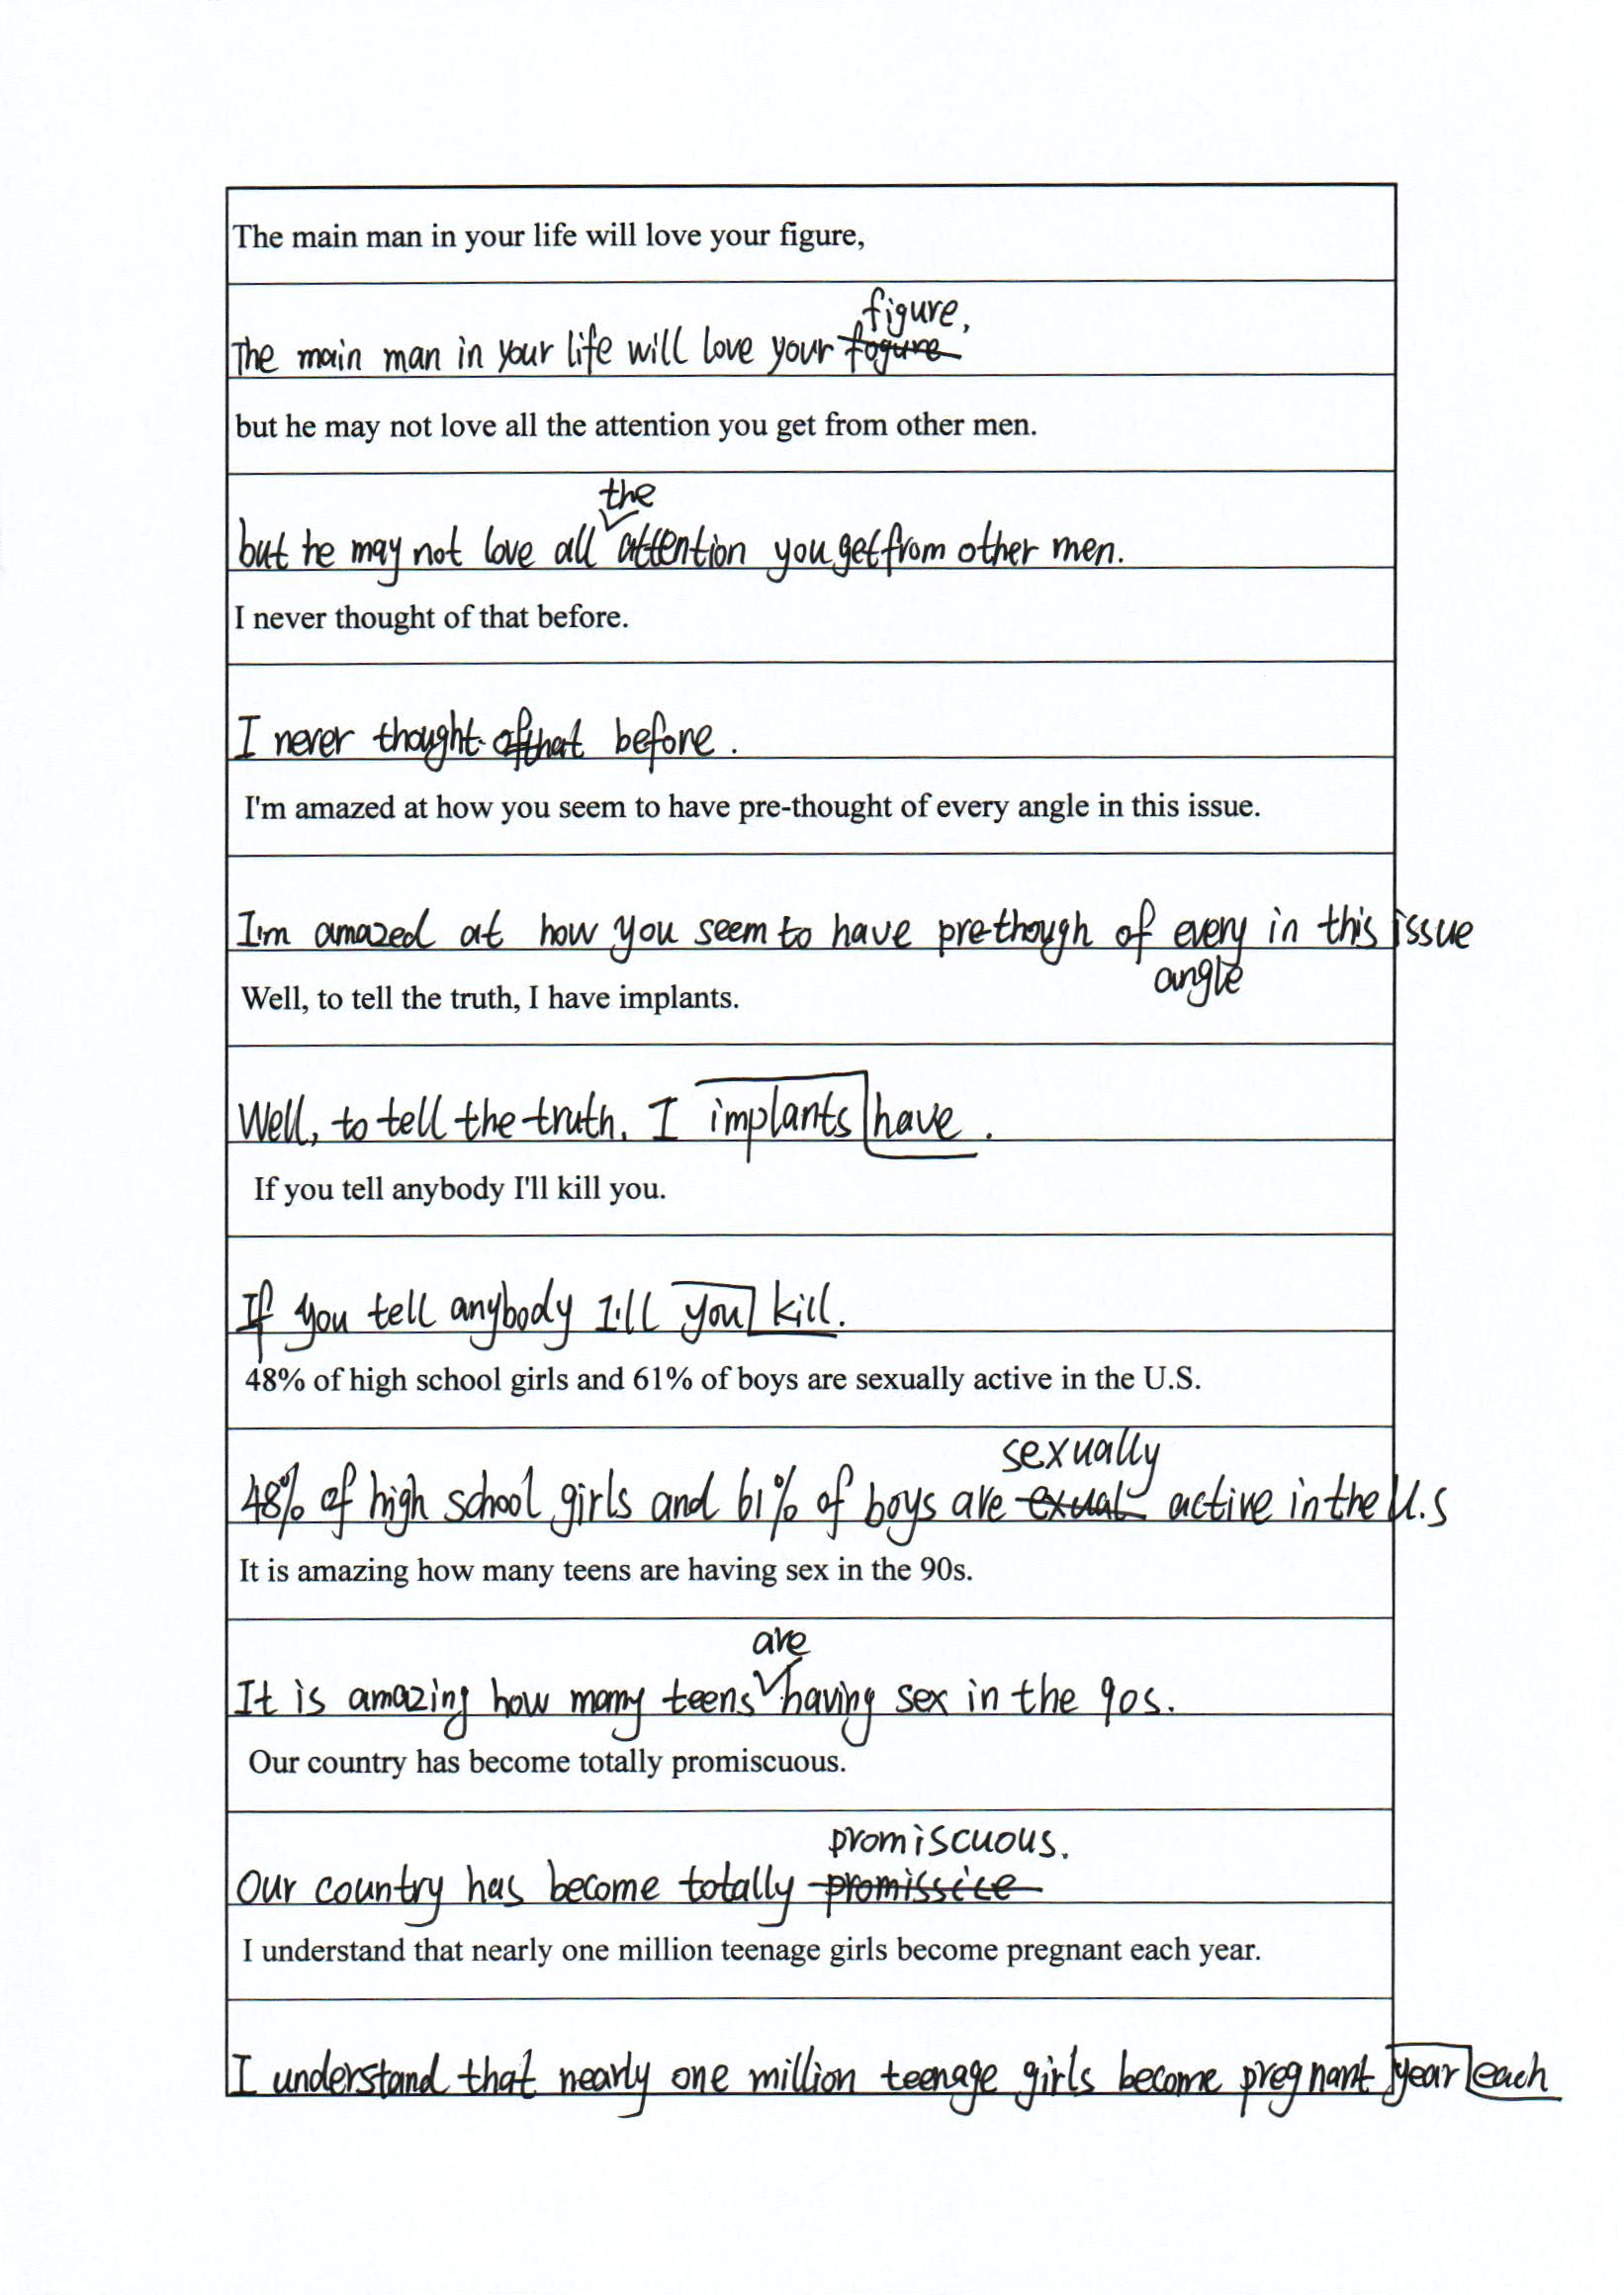 The main man in your life will love your figure,
figure,
The main man in your life will love your fogure
but he may not love all the attention you get from other men.
the
but he may not love all attention you get from other men.
I never thought of that before.
I never thought of that before.
I'm amazed at how you seem to have pre-thought of every angle in this issue.
I'm amazed at how you seem to have pre-though of every in this issue
angle
Well, to tell the truth, I have implants.
Well, to tell the truth, I implants have.
If you tell anybody I'll kill you.
If you tell anybody I'll you kill.
48% of high school girls and 61% of boys are sexually active in the U.S.
sexually
48% of high school girls and 61% of boys are exual active in the U.S
It is amazing how many teens are having sex in the 90s.
are
It is amazing how many teens having sex in the 90s.
Our country has become totally promiscuous.
promiscuous.
Our country has become totally promissice
I understand that nearly one million teenage girls become pregnant each year.
I understand that nearly one million teenage girls become pregnant year each